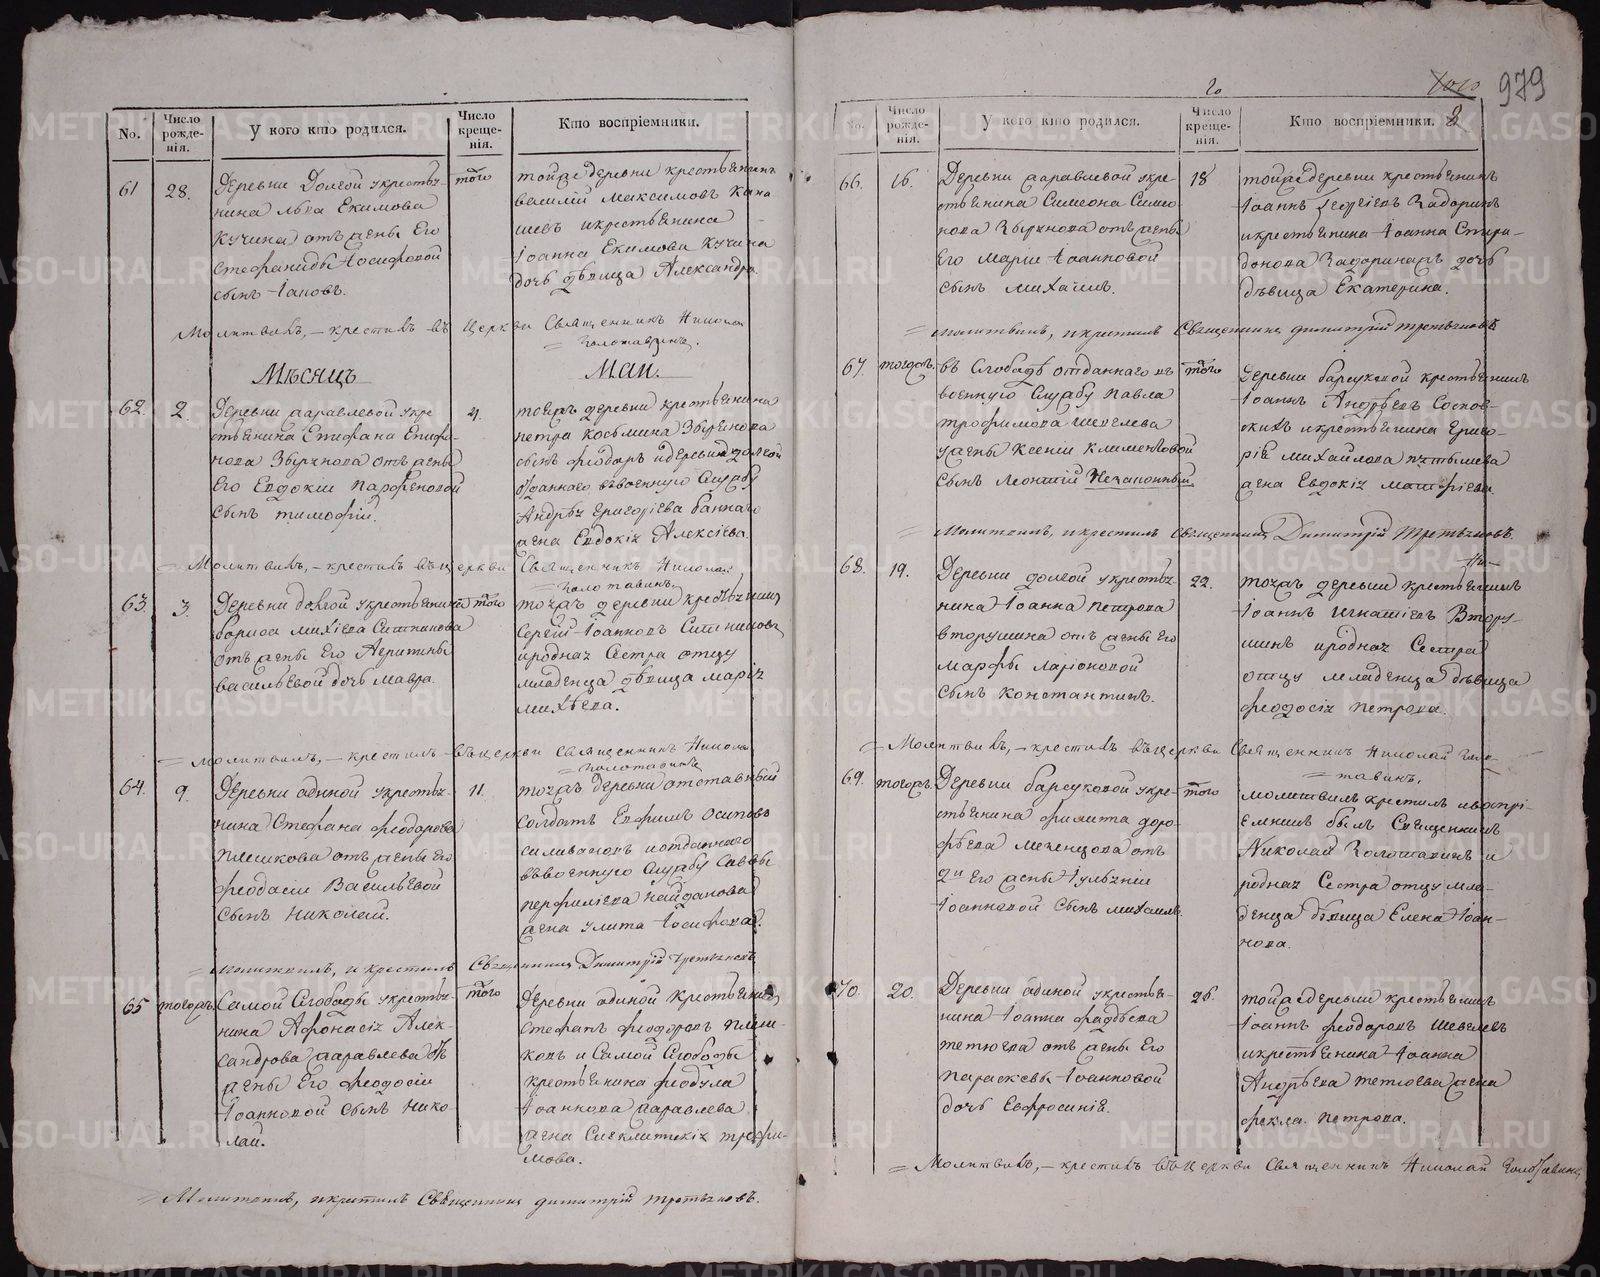 No.
Число рожде-нія.
У кого кто родился.
Число креще-нія.
Кто воспріемники.
61
28.
Деревни Долгой у крестья-
нина Льва Екимова
Кучина отъ жены Его
Стефаниды Іосифовой
сынъ Іаковъ.
того
тойже деревни крестьянинъ
василій Максимовъ Кана
шевъ и крестьянина
Іоанна Екимова Кучина
дочь дѣвица Александра.
Молитвилъ, – крестилъ въ Церкви Священникъ Николай
Мѣсяцъ
Маи.
62.
2.
Деревни Журавлевой у кре
стьянина Епифана Епифа-
нова Зырянова отъ жены
Его Евдокіи Парфеновой
сынъ тимофій.
4.
тояжъ деревни крестьянина
петра Косьмина Зырянова
сынъ феодоръ и деревни долгой
отданнаго въ военную Службу
Андрея Григоріева
жена Евдокія Алексіева.
Молитвилъ, – крестилъ въ церкви Священникъ Николай
63.
3.
Деревни долгой у крестьянина
бориса михіева Ситникова
отъ жены Его Агрипины
васильевой дочь мавра.
того
тояжъ деревни крестьянинъ
Сергій Іоанновъ Ситниковъ
и родная Сестра отцу
младенца дѣвица марія
михѣева.
Молитвилъ, – крестилъ въ церкви священникъ Николай
64.
9.
Деревни одиной у крестья-
нина Стефана феодорова
плешкова отъ жены его
феодосіи Васильевой
сынъ Николай.
11.
тояжъ деревни отставный
солдатъ Ефимъ Осиповъ
Селивановъ и отданнаго
въ военную Службу Саввы
перфиліева найданова
жена улита Іосифова.
молитвилъ, и крестилъ Священникъ Димитрій Третьяковъ.
65
тогожъ.
Самой Слободы у крестья-
нина Афонасія Алек-
сандрова Журавлева отъ
жены Его феодосіи
Іоанновой сынъ Нико-
лай.
того
Деревни одиной крестьянинъ
Стефанъ феодоровъ плеш-
ковъ и Самой Слободы
крестьянина феодула
Іоаннова Журавлева
жена Синклитикія трофи-
мова.
Молитвилъ, и крестилъ Священникъ димитрій третьяковъ.
979
No.
Число рожде-нія.
У кого кто родился.
Число креще-нія.
Кто воспріемники.
66.
16.
Деревни Журавлевой у кре-
стьянина Симеона Симео
нова Зырянова отъ жены
Его Маріи Іоанновой
сынъ Михаилъ.
18
тойже деревни крестьянинъ
Іоаннъ Георгіевъ Задоринъ
и крестьянина Іоанна Спири-
донова Задорина дочь
дѣвица Екатерина.
молитвилъ, и крестилъ Священникъ димитрій третьяковъ
67.
тогожъ.
въ Слободѣ отданнаго въ
военную Службу Павла
трофимова Шевелева
у жены Ксеніи Климентовой
сынъ Леонтій Незаконный
того
Деревни барсуковой крестьянинъ
Іоаннъ Андрѣевъ Соснов-
скихъ и крестьянина Григо-
рія михайлова
жена Евдокія матфіева.
Молитвилъ, и крестилъ священникъ Димитрій Третьяковъ.
68.
19.
Деревни долгой у крестья-
нина Іоанна петрова
вторушина отъ жены Его
марфы Ларіоновой
сынъ константинъ.
22.
тояжъ деревни крестьянинъ
Іоаннъ Игнатіевъ Втору-
шинъ и родная Сестра
отцу младенца дѣвица
феодосія петрова.
Молитвилъ, – крестилъ въ церкви Священникъ Николай Голо-
тавинъ.
69.
тогожъ.
Деревни барсуковой у кре-
стьянина филипа доро-
фѣева Мезенцова отъ
2й Его жены Іуліаніи
Іоанновой сынъ михаилъ.
того
молитвилъ крестилъ и воспрі-
емникъ былъ Священникъ
Николай Холотавинъ и
родная Сестра отцу мла-
денца дѣвица Елена Іоан-
нова.
70.
20.
Деревни одиной у крестья-
нина Іоанна фадѣева
тетюева отъ жены Его
параскевы Іоанновой
дочь Евфросинія.
26.
тойже деревни крестьянинъ
Іоаннъ феодоровъ Шевелевъ
и крестьянина Іоанна
Андрѣева тетюева жена
фекла петрова.
Молитвилъ, – крестилъ въ церкви Священникъ Николай
METRIKI.GASO-URAL.RU